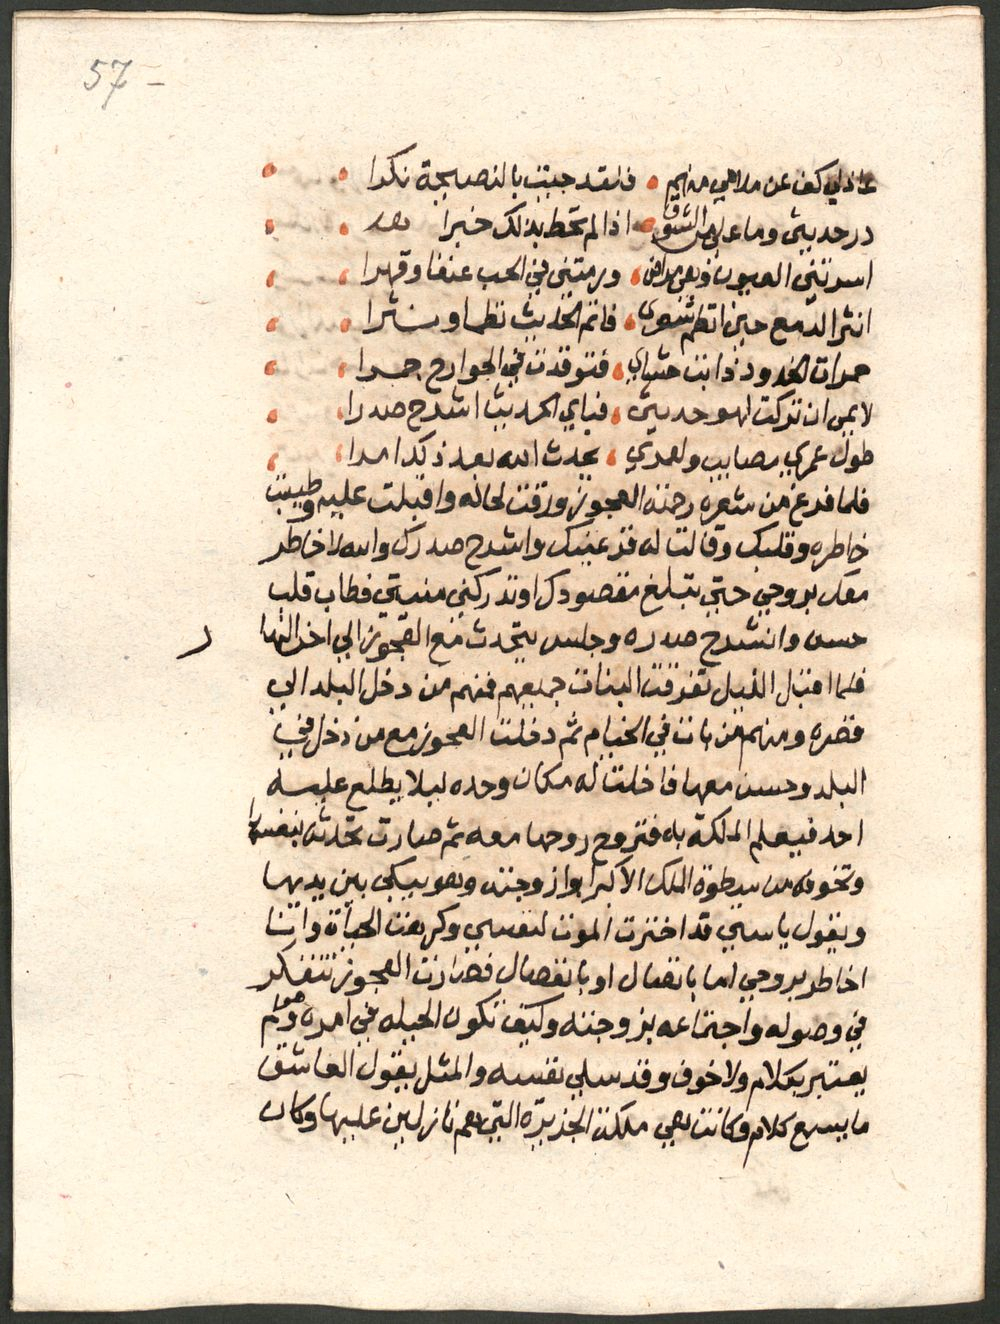 57 -
عاذلي كف عن ملامي مهم فلقد جيت بالنصيحة نكرا
در حديثي وما علي من الشوق اذا لم تحط بذلك خبرا
اسرتني العيون وهي مراض ورمتني في الحب عنفا وقهرا
انثر الدمع حين انظم شعري فانتم الحديث نظما ونثرا
حمرات الخدود ذابت حشاي فتوقدت في الجوارح جمرا
لا يمي ان تركت لهو حديثي فباي الحديث اشرح صدرا
طول عمري مصايب ولعمري يحدث الله بعد ذلك امرا
فلما فرغ من شعره رحمته العجوز ورقت لحاله واقبلت عليه وطيبت
خاطره وقلبك وقالت له قر عينك واشرح صدرك والله لاخاطر
معك بروحي حتي تبلغ مقصودك او تدركني منيتي فطاب قلب
حسن وانشرح صدره وجلس يتحدث مع العجوز الي اخر النهار
فلما اقبل الليل تفرقت البنات جميعهم فمنهم من دخل البلد الي
قصره ومنهم من بات في الخيام ثم دخلت العجوز مع من دخل في
البلد وحسن معها فاخلت له مكان وحده ليلا يطلع عليه
احد فيعلم الملكة به فتروح روحها معه ثم صارت تحدثه بنفسها
وتخوفه من سطوة الملك الاكبر ابوا زوجته وهو يبكي بين يديها
ويقول يا ستي قد اخترت الموت لنفسي وكرهت الحياة وانا
اخاطر بروحي اما باتصال او بانفصال فصارت العجوز تتفكر
في وصوله واجتماعه بزوجته وكيف تكون الحيله في امره وهو لم
يعتبر بكلام ولا خوف وقد سلي نفسه والمثل يقول العاشق
ما يسمع كلام وكانت هي ملكة الجزيره التي هم نازلين عليها وكان